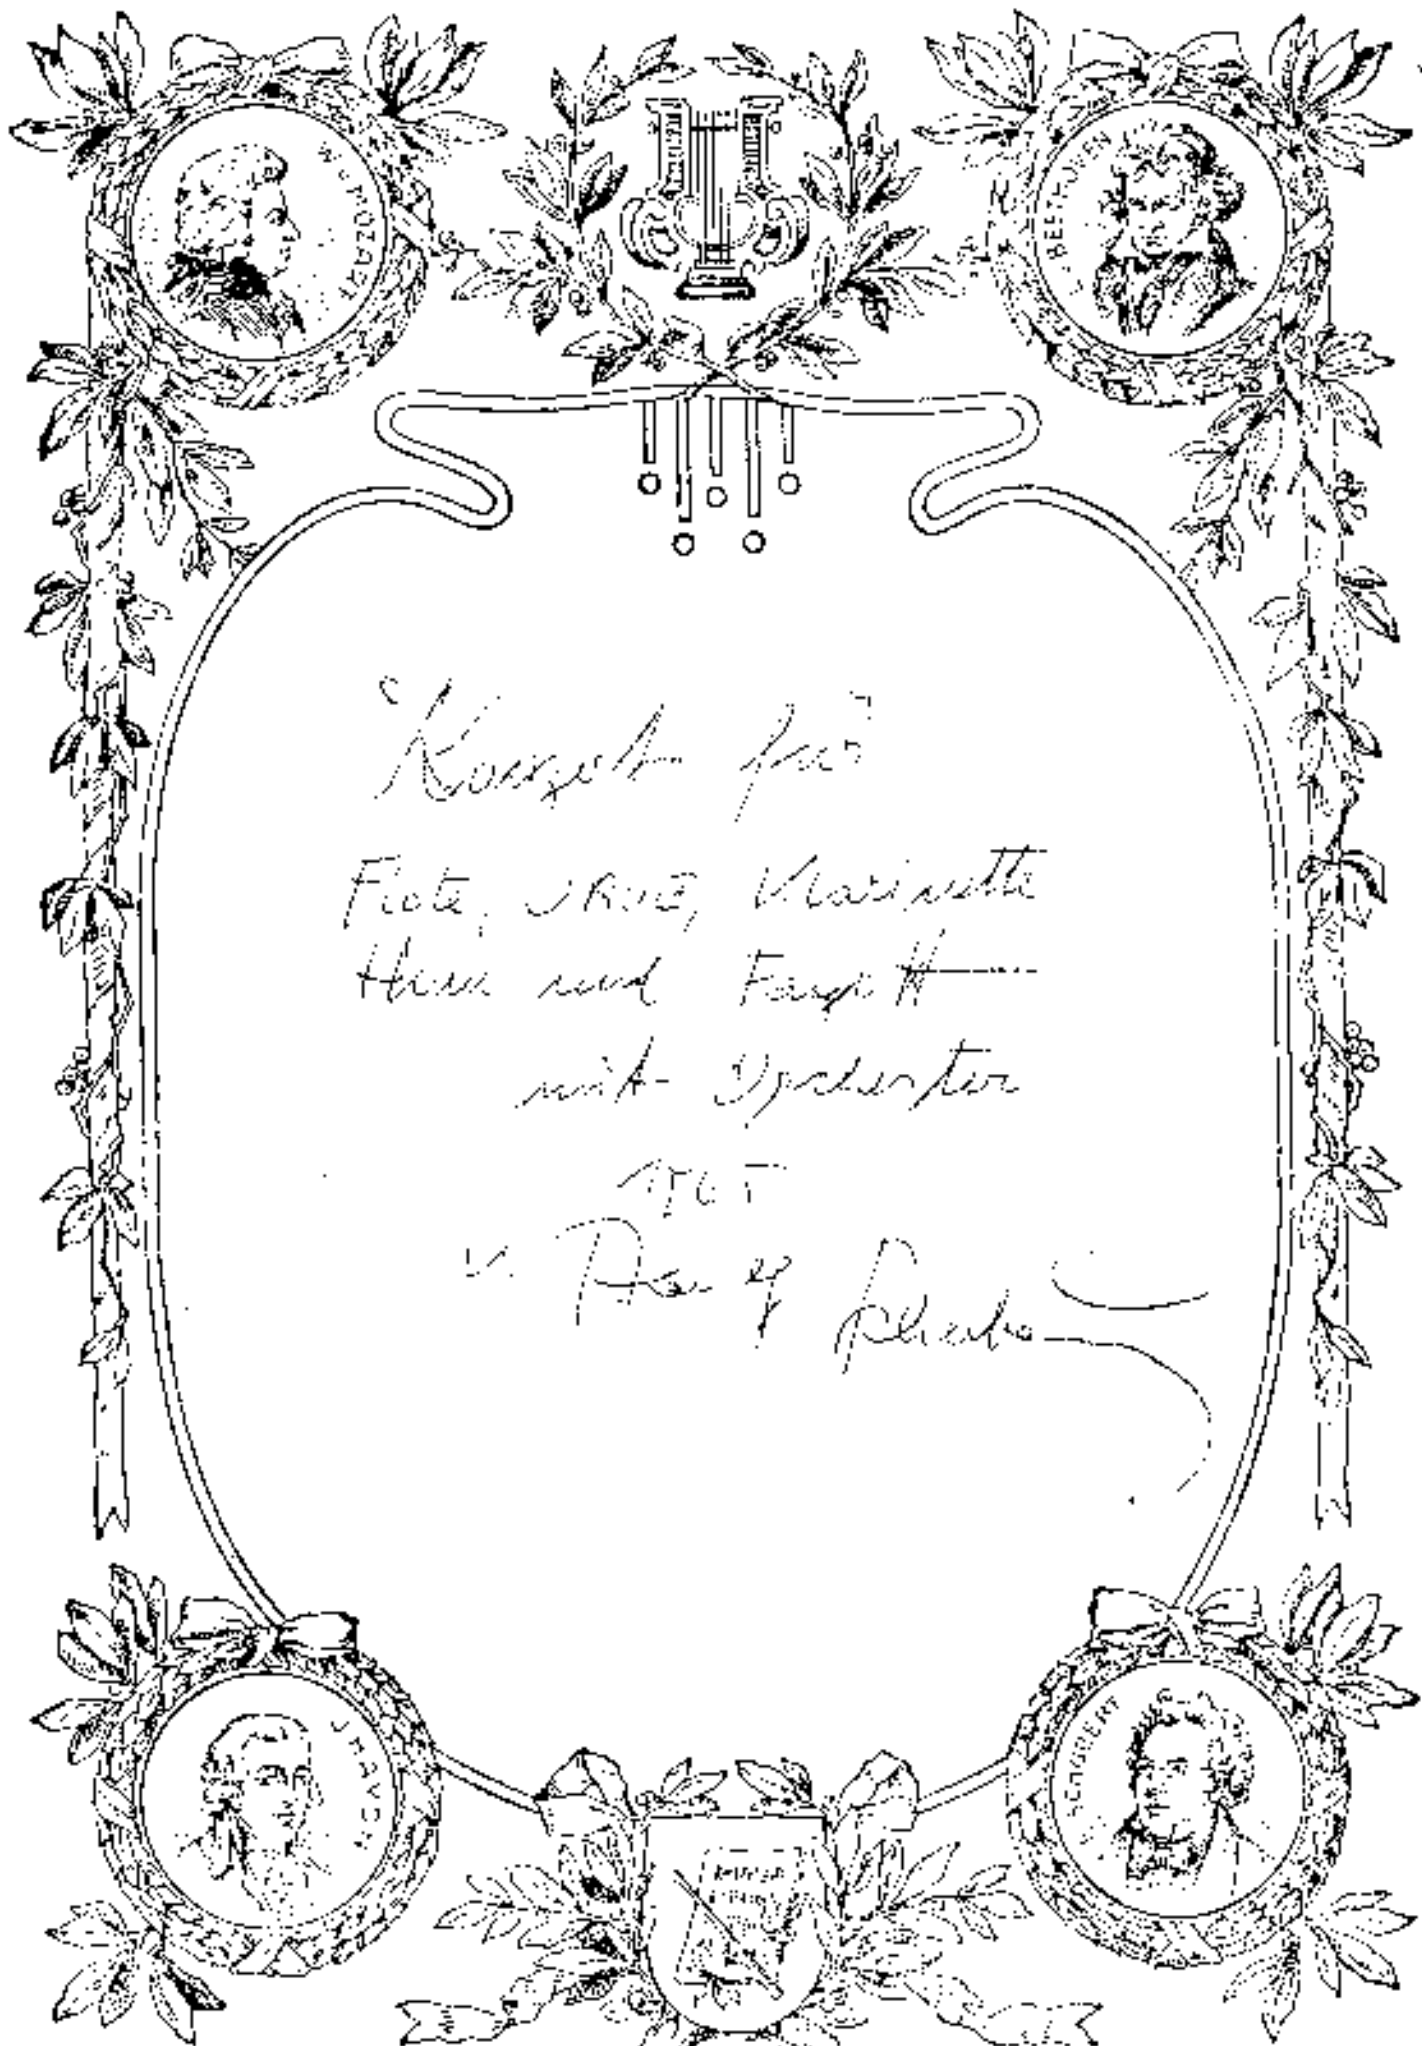 W. A. MOZART
L. v. BEETHOVEN
Konzert für
Flöte, Oboe, Klarinette
Horn und Fagott
mit Orchester
1965
v.
J. HAYDN
F. SCHUBERT